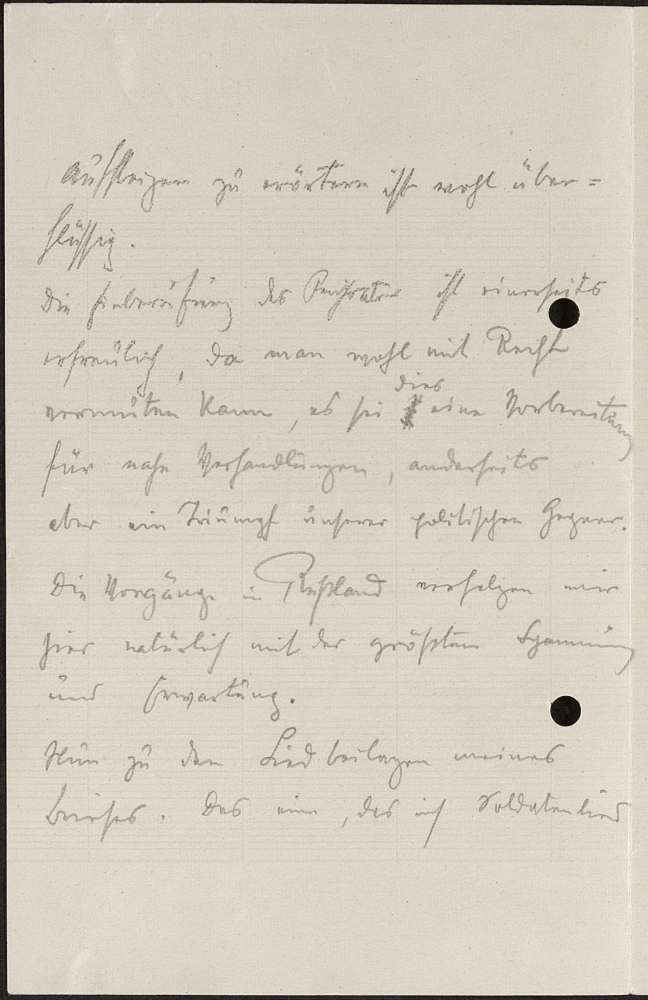 Aufsteigen zu erörtern ist wohl über=
flüssig.
Die Einberufung des Reichsrates ist einerseits
erfreulich, da man wohl mit Recht
vermuten kann, es sei dies eine Vorbereitung
für nahe Verhandlungen, anderseits
aber ein Triumpf unserer politischen Gegner.
Die Vorgänge in Rußland verfolgen wir
hier natürlich mit der größten Spannung
und Erwartung.
Nun zu den Liedbeilagen meines
Briefes. Das eine, das ich Soldatenlied